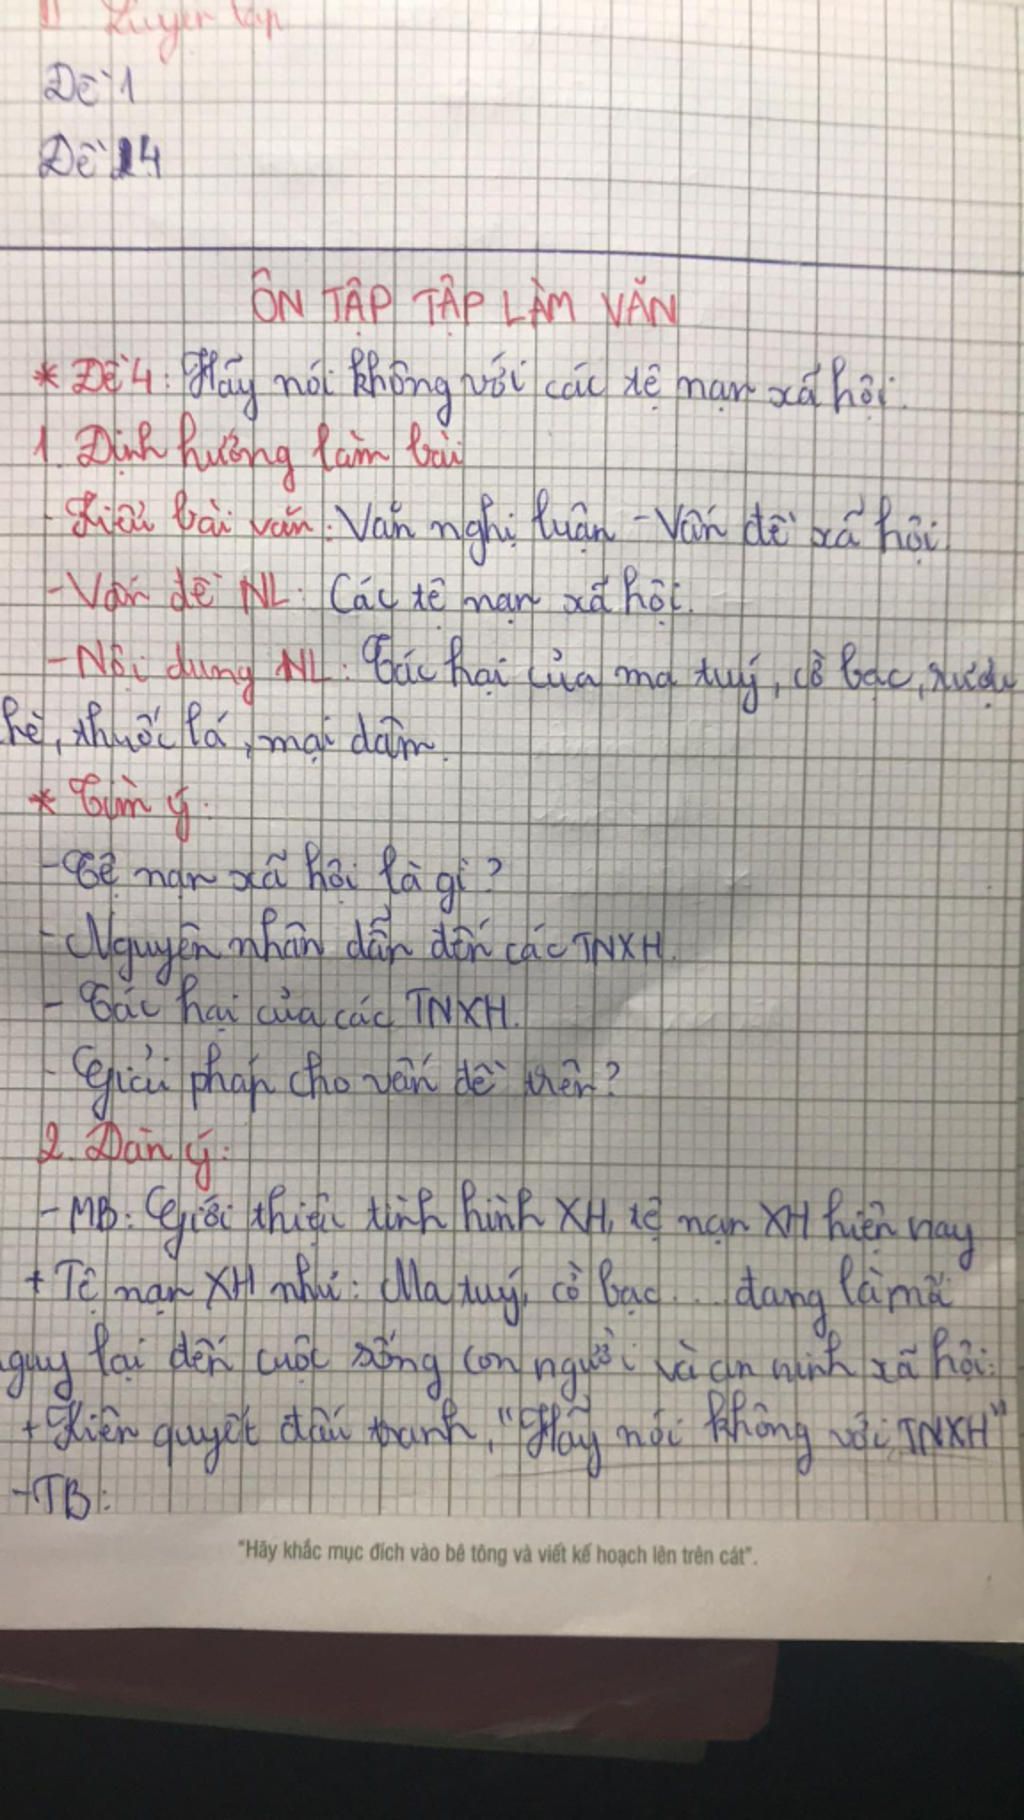 II Luyện tập
Đề 1
Đề 4
ÔN TẬP TẬP LÀM VĂN
* Đề 4: Hãy nói không với các tệ nạn xã hội.
1. Định hướng làm bài
- Kiểu bài văn: Văn nghị luận - Vấn đề xã hội
- Vấn đề NL: Các tệ nạn xã hội.
- Nội dung NL: Tác hại của ma tuý, cờ bạc, rượu
hè, thuốc lá, mại dâm.
* Tìm ý:
- Tệ nạn xã hội là gì?
- Nguyên nhân dẫn đến các TNXH.
- Tác hại của các TNXH.
- Giải pháp cho vấn đề trên?
2. Dàn ý:
- MB: Giới thiệu tình hình XH, tệ nạn XH hiện nay
+ Tệ nạn XH như: Ma tuý, cờ bạc... đang là mối
nguy lại đến cuộc sống con người và an ninh xã hội.
+ Kiên quyết đấu tranh, "Hãy nói không với TNXH"
- TB:
"Hãy khắc mục đích vào bê tông và viết kế hoạch lên trên cát".